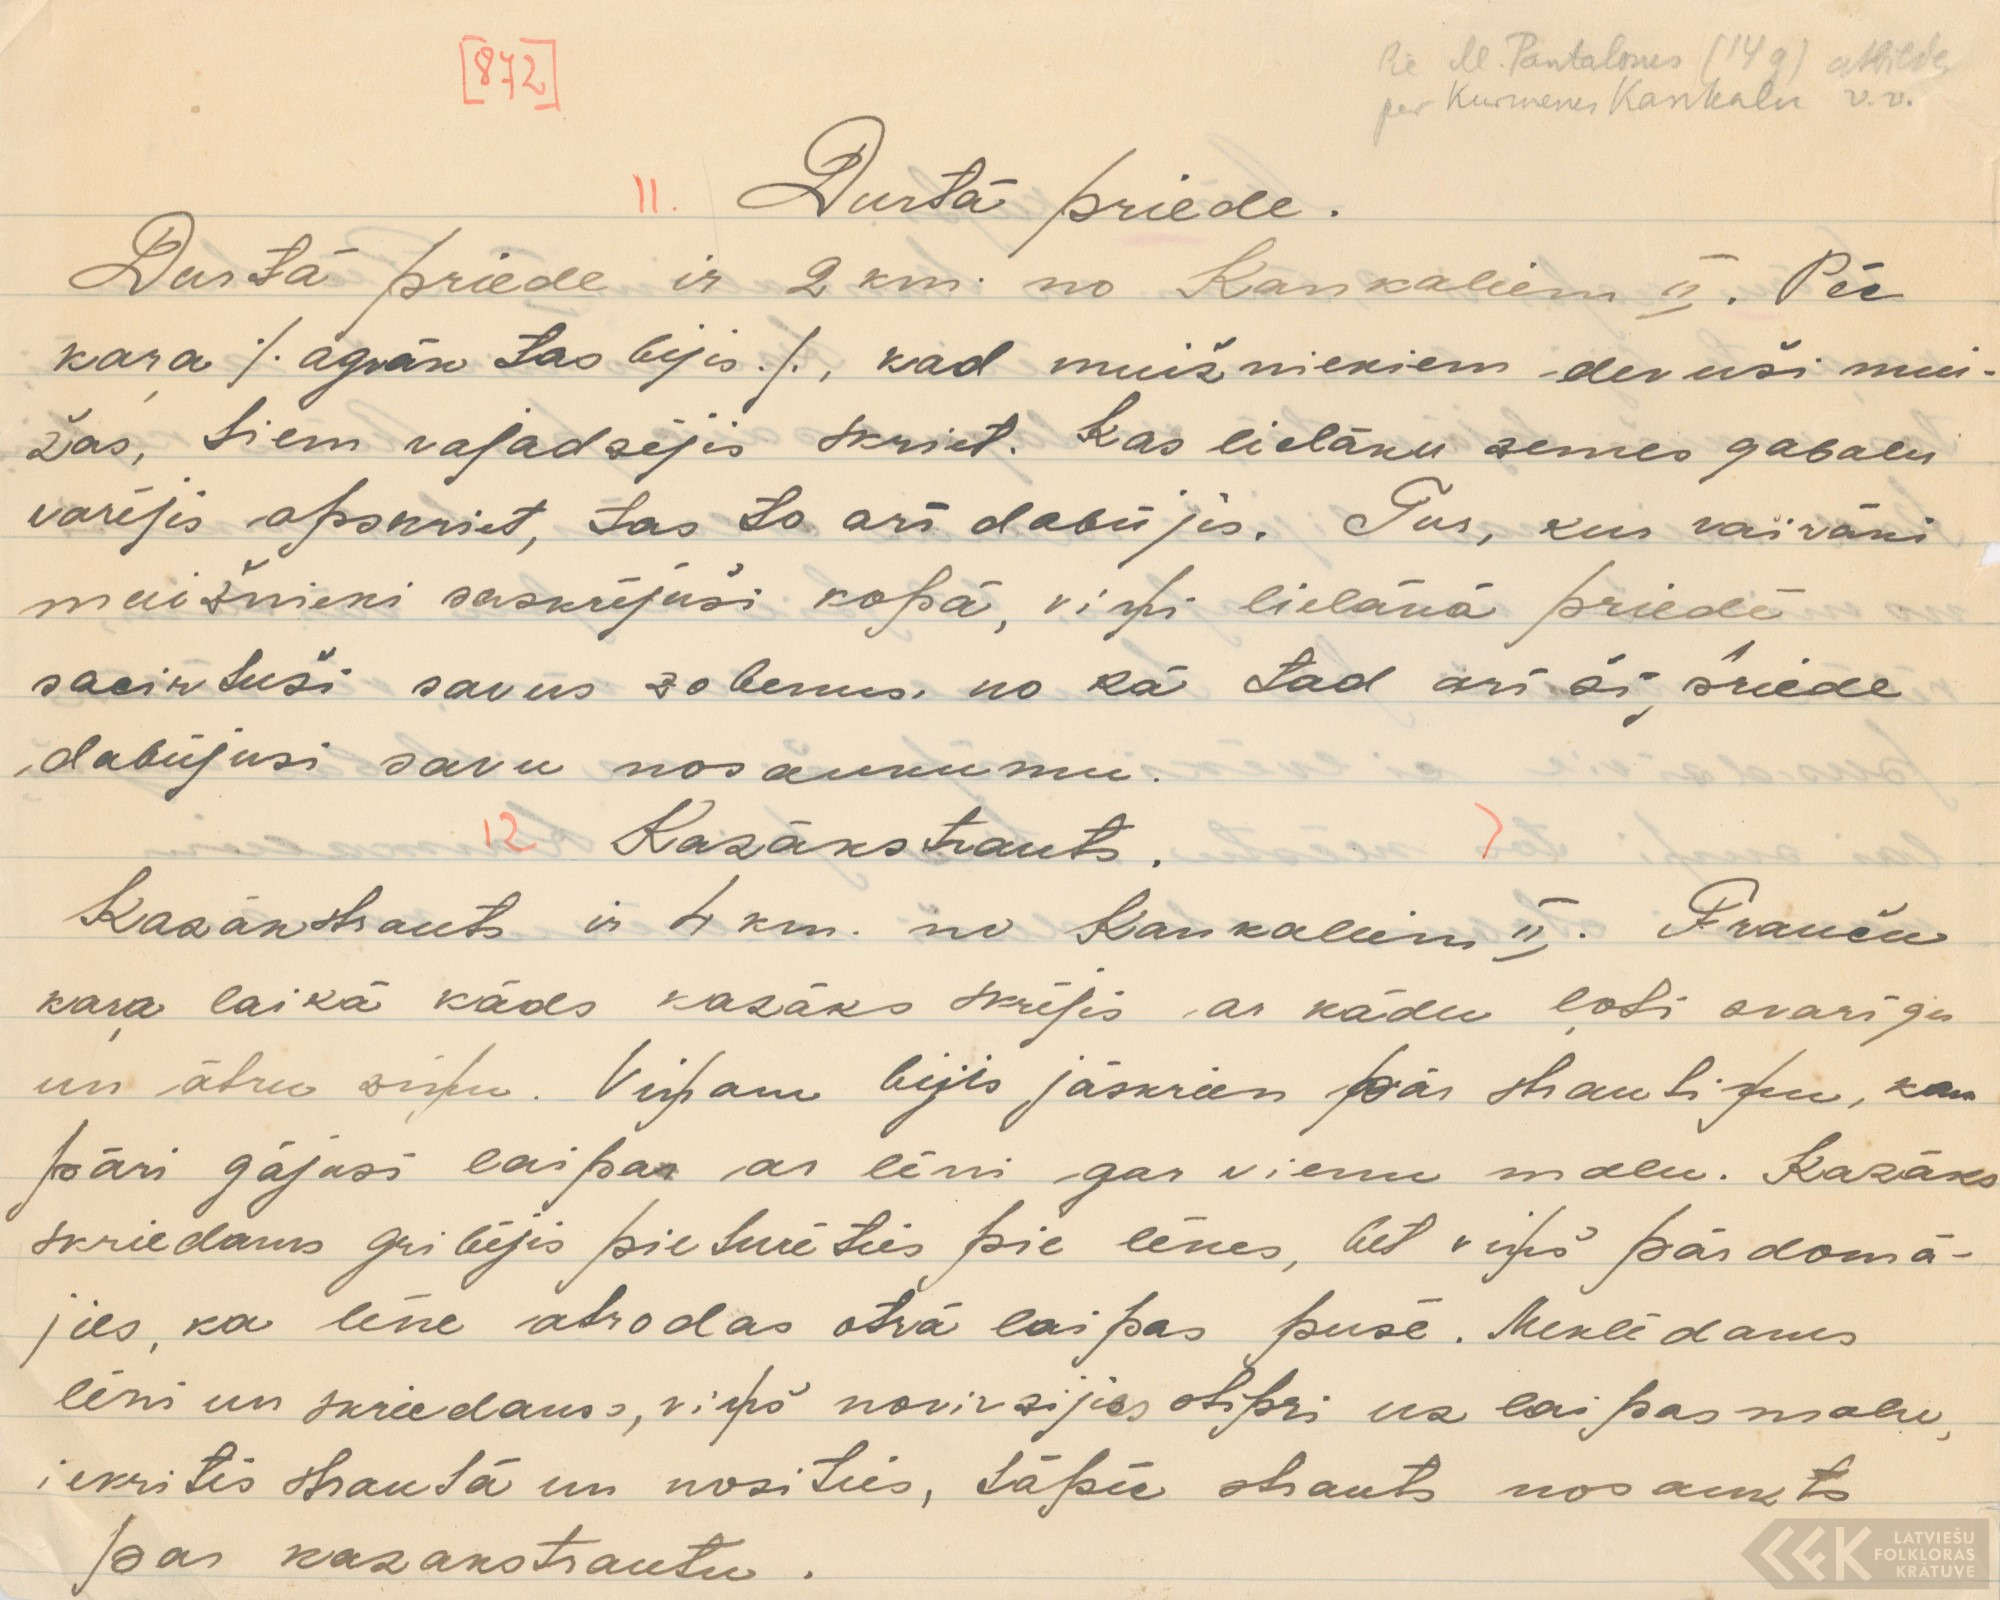 [872]
Pie M. Pantalones (14 g) atbilde
par Kurmenes Kankaļu v.v.
11. Durtā priede.
Durtā priede ir 2 km. no Kankaliem II. Pēc
kaŗa /. agrāk tas bijis ./., kad muižniekiem devuši mui-
žas, tiem vajadzējis skriet. Kas lielāku zemes gabalu
varējis apskriet, tas to arī dabūjis. Tur, kur vairāki
muižnieki saskrējuši kopā, viņi lielākā priedē
sacirtuši savus zobenus, no kā tad arī šī priede
dabūjusi savu nosaukumu.
12 Kazākstrauts.
Kazākstrauts ir 4 km. no Kankaliem II. Franču
kaŗa laikā kāds kazāks skrējis ar kādu ļoti svarīgu
un ātru ziņu. Viņam bijis jāskrien pār strautiņu, kam
pāri gājusi laipa ar lēni gar vienu malu. Kazāks
skriedams gribējis pieturēties pie lēnes, bet viņš pārdomā-
jies, ka lēne atrodas otrā laipas pusē. Meklēdams
lēni un skriedams, viņš novirzijies stipri uz laipas malu,
iekritis strautā un nosities, tāpēc strauts nosaukts
par kazakstrautu.
LATVIEŠU
FOLKLORAS
KRĀTUVE